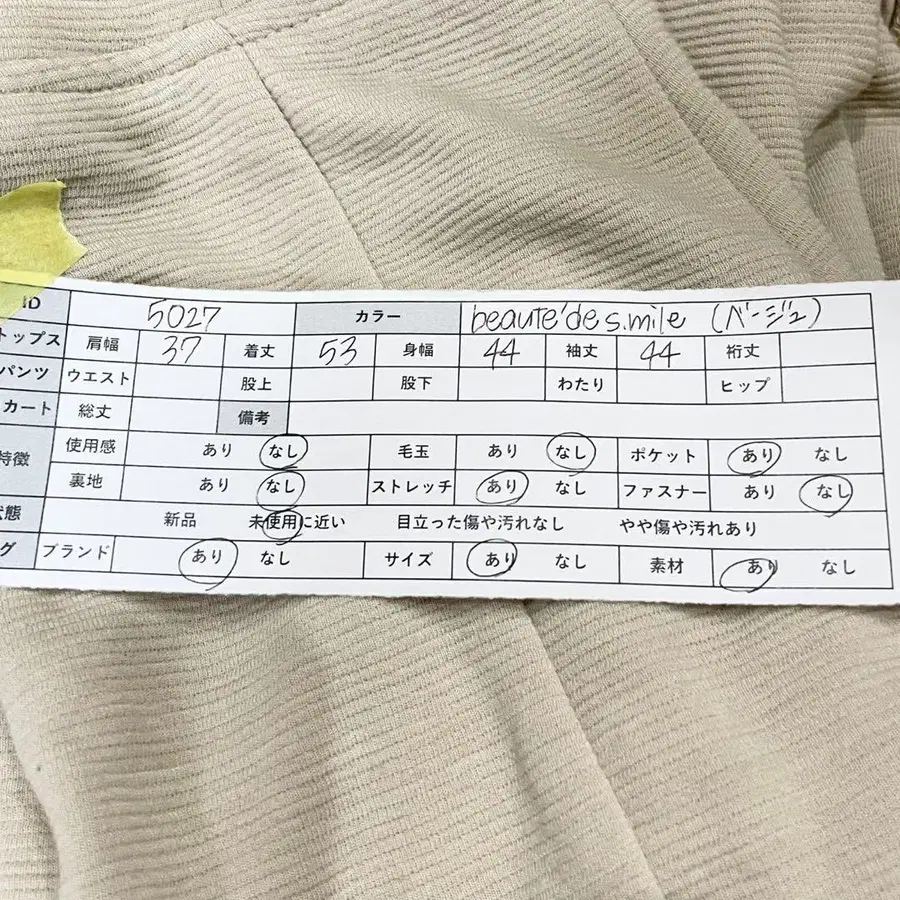 ID 5027 カラー beauté de s.mile (ベージュ)
トップス 肩幅 37 着丈 53 身幅 44 袖丈 44 裄丈
パンツ ウエスト 股上 股下 わたり ヒップ
カート 総丈 備考
特徴 使用感 あり なし 毛玉 あり なし ポケット あり なし
裏地 あり なし ストレッチ あり なし ファスナー あり なし
状態 新品 未使用に近い 目立った傷や汚れなし やや傷や汚れあり
グ ブランド あり なし サイズ あり なし 素材 あり なし